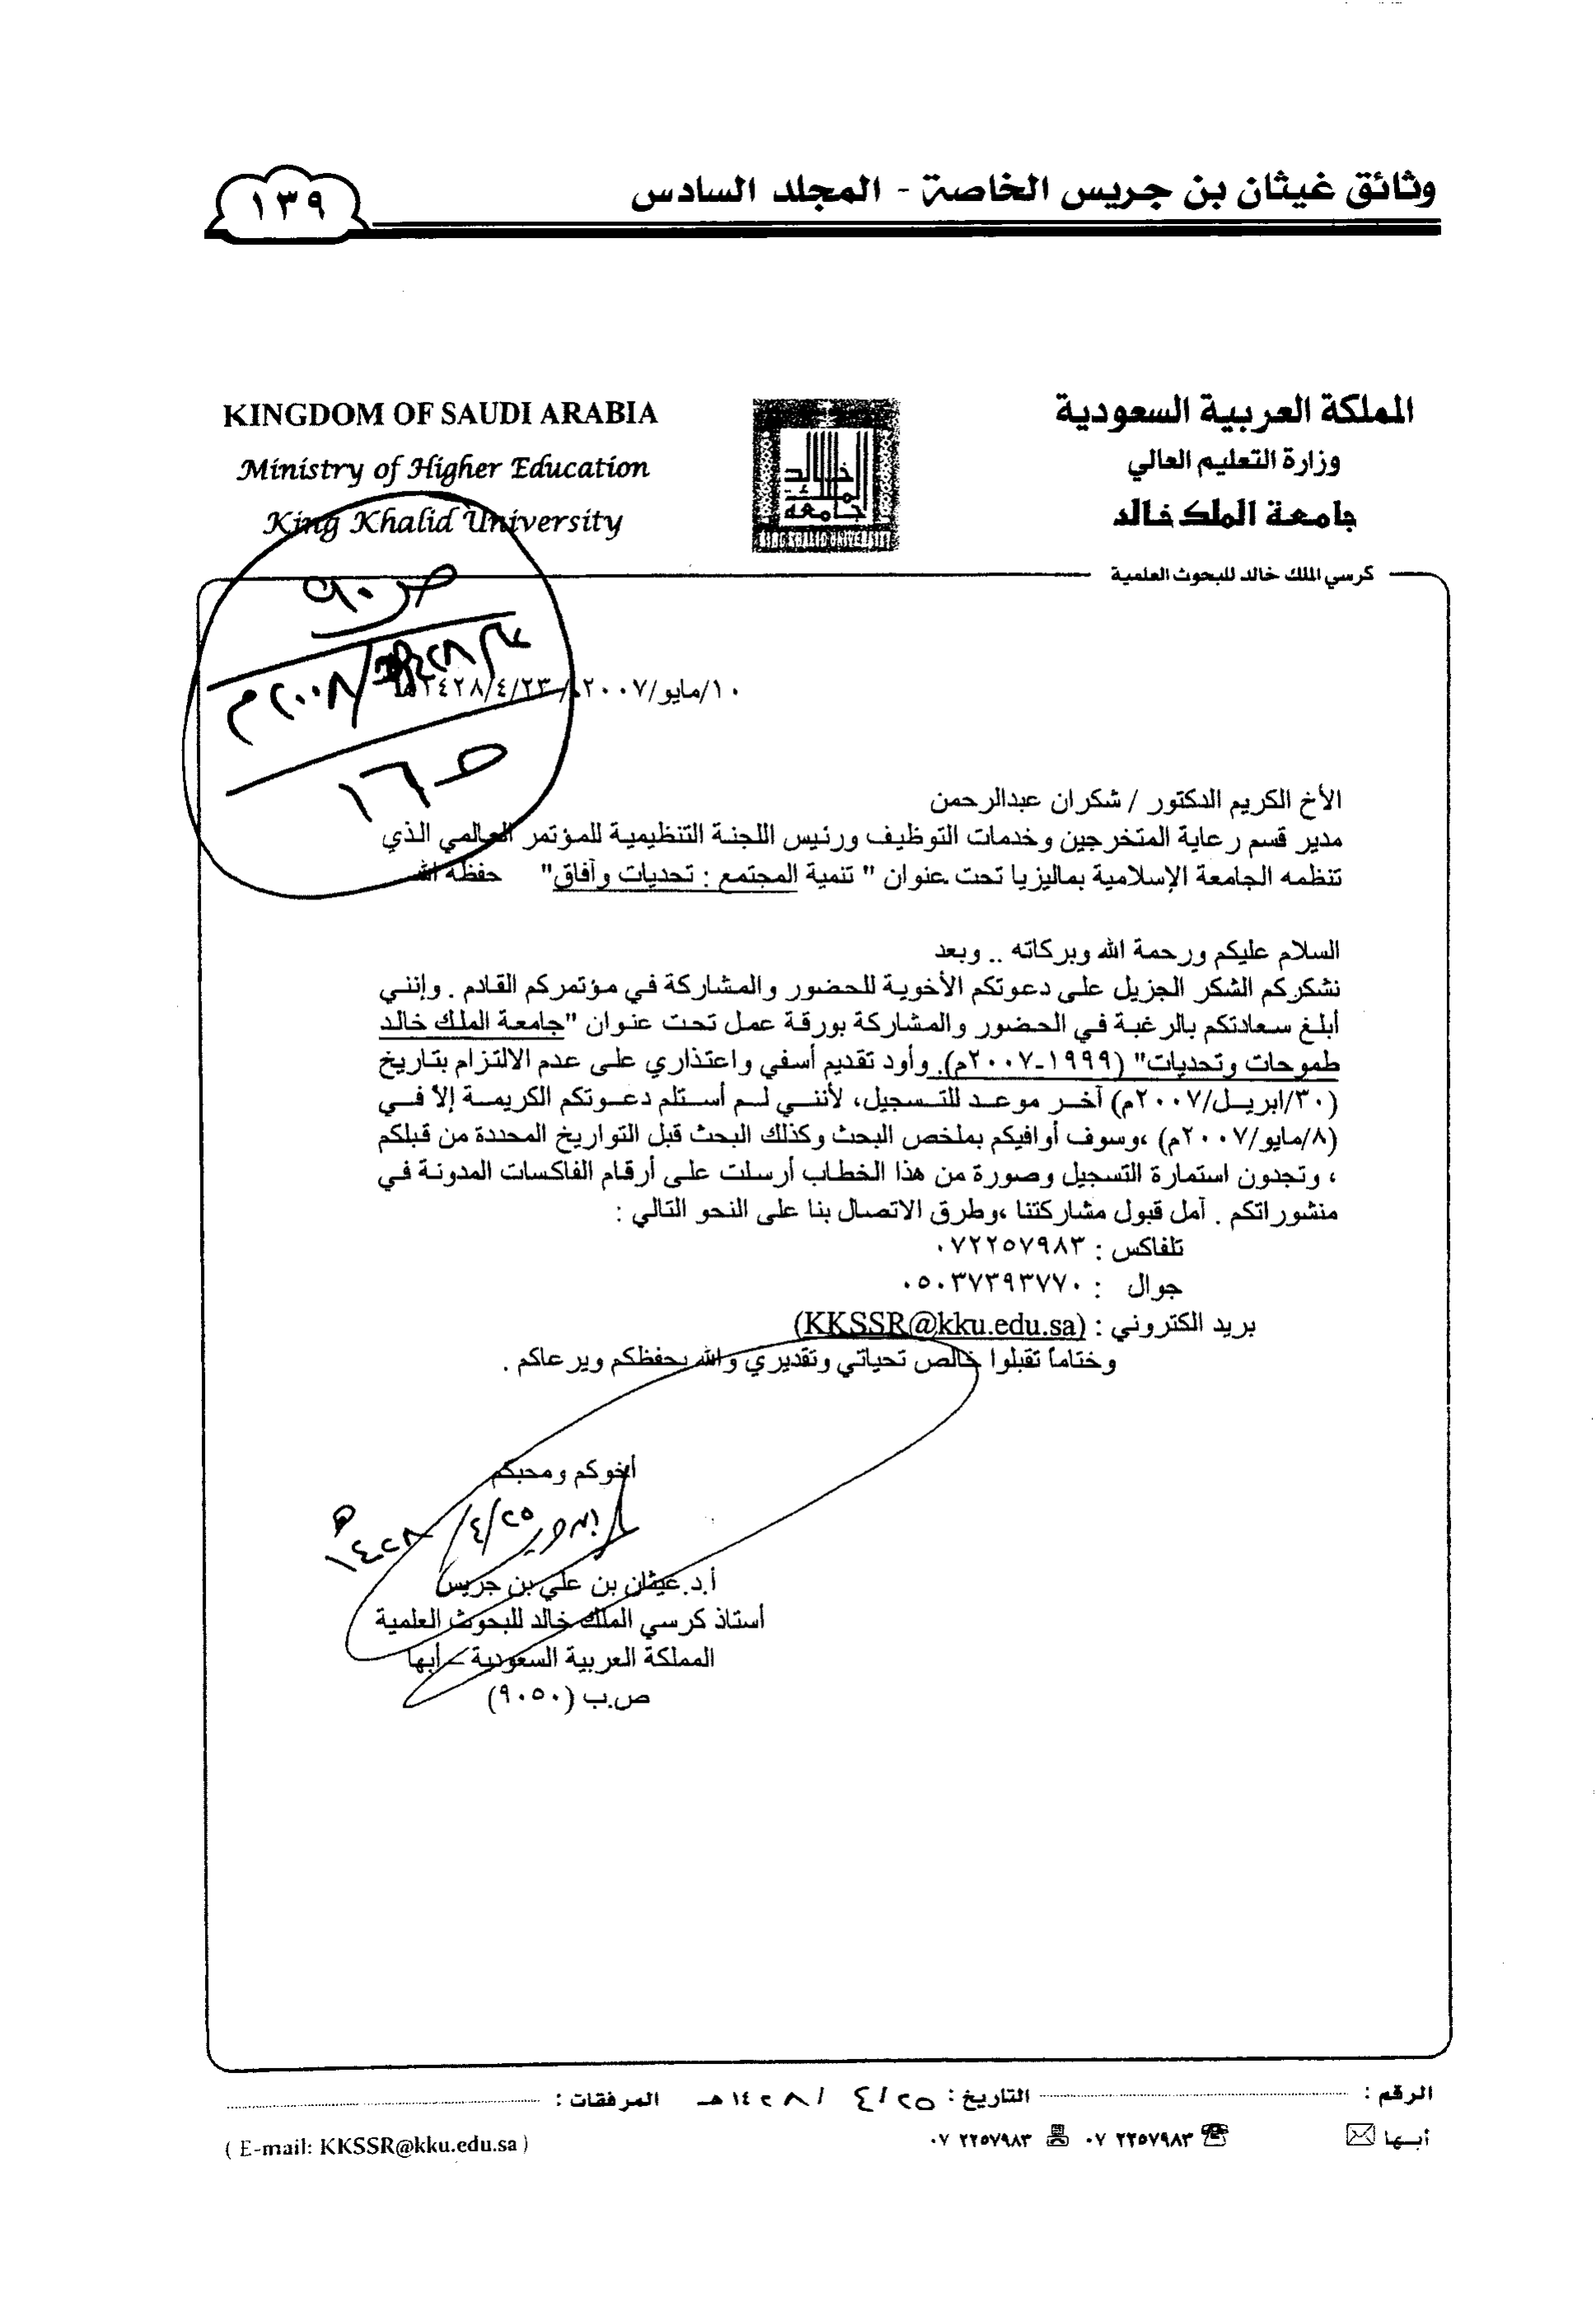 وثائق غيثان بن جريس الخاصة - المجلد السادس
١٣٩
المملكة العربية السعودية
وزارة التعليم العالي
جامعة الملك خالد
KINGDOM OF SAUDI ARABIA
Ministry of Higher Education
King Khalid University
جامعة الملك خالد
KING KHALID UNIVERSITY
كرسي الملك خالد للبحوث العلمية
ص ٩٠
٢٠٠٨م
ص ١٦
١٠/مايو/٢٠٠٧
الأخ الكريم الدكتور / شكران عبدالرحمن
مدير قسم رعاية المتخرجين وخدمات التوظيف ورئيس اللجنة التنظيمية للمؤتمر العالمي الذي
تنظمه الجامعة الإسلامية بماليزيا تحت عنوان " تنمية المجتمع : تحديات وآفاق" حفظه الله
السلام عليكم ورحمة الله وبركاته .. وبعد
نشكركم الشكر الجزيل على دعوتكم الأخوية للحضور والمشاركة في مؤتمركم القادم . وإنني
أبلغ سعادتكم بالرغبة في الحضور والمشاركة بورقة عمل تحت عنوان "جامعة الملك خالد
طموحات وتحديات" (١٩٩٩-٢٠٠٧م). وأود تقديم أسفي واعتذاري على عدم الالتزام بتاريخ
(٣٠/ابريل/٢٠٠٧م) آخر موعد للتسجيل، لأنني لم أستلم دعوتكم الكريمة إلا في
(٨/مايو/٢٠٠٧م) ،وسوف أوافيكم بملخص البحث وكذلك البحث قبل التواريخ المحددة من قبلكم
، وتجدون استمارة التسجيل وصورة من هذا الخطاب أرسلت على أرقام الفاكسات المدونة في
منشوراتكم . آمل قبول مشاركتنا ،وطرق الاتصال بنا على النحو التالي :
تلفاكس : ٠٧٢٢٥٧٩٨٣
جوال : ٠٥٠٣٧٣٩٣٧٧٠
بريد الكتروني : (KKSSR@kku.edu.sa)
وختاماً تقبلوا خالص تحياتي وتقديري والله يحفظكم ويرعاكم .
أخوكم ومحبكم
٤/٢٥/ ١٤٢٨هـ
أ.د.غيثان بن علي بن جريس
أستاذ كرسي الملك خالد للبحوث العلمية
المملكة العربية السعودية – أبها
ص.ب (٩٠٥٠)
الرقم : التاريخ : ٢٥/ ٤ / ١٤٢٨هـ المرفقات :
أبـها ٠٧ ٢٢٥٧٩٨٣ ٠٧ ٢٢٥٧٩٨٣ ( E-mail: KKSSR@kku.edu.sa )